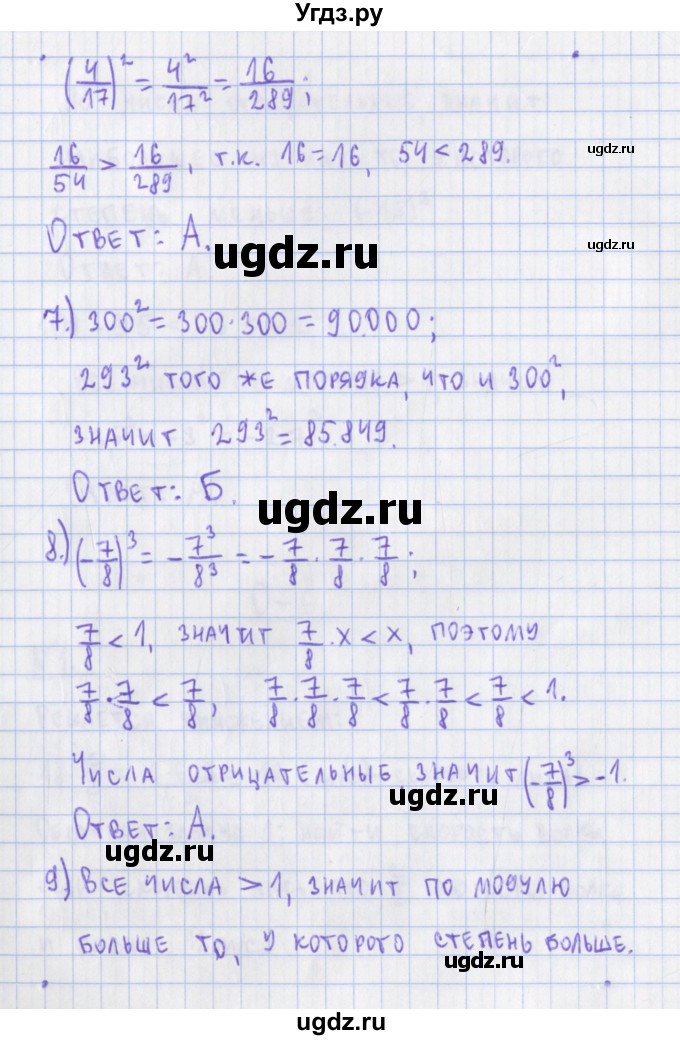 Угдз.ру
(4/17)² = 4²/17² = 16/289;
16/54 > 16/289, т.к. 16 = 16, 54 < 289.
ugdz.ru
Ответ: А.
ugdz.ru
ugdz.ru
7.) 300² = 300·300 = 90000;
293² того же порядка, что и 300²,
ugdz.ru
значит 293² = 85.849.
Ответ: Б.
ugdz.ru
8.) (-7/8)³ = -7³/8³ = -7/8 · 7/8 · 7/8;
7/8 < 1, значит 7/8 · x < x, поэтому
ugdz.ru
7/8 · 7/8 < 7/8, 7/8 · 7/8 · 7/8 < 7/8 · 7/8 < 7/8 < 1.
Числа отрицательные, значит (-7/8)³ > -1.
ugdz.ru
Ответ: А.
ugdz.ru
9) Все числа > 1, значит по модулю
больше то, у которого степень больше.
ugdz.ru
ugdz.ru